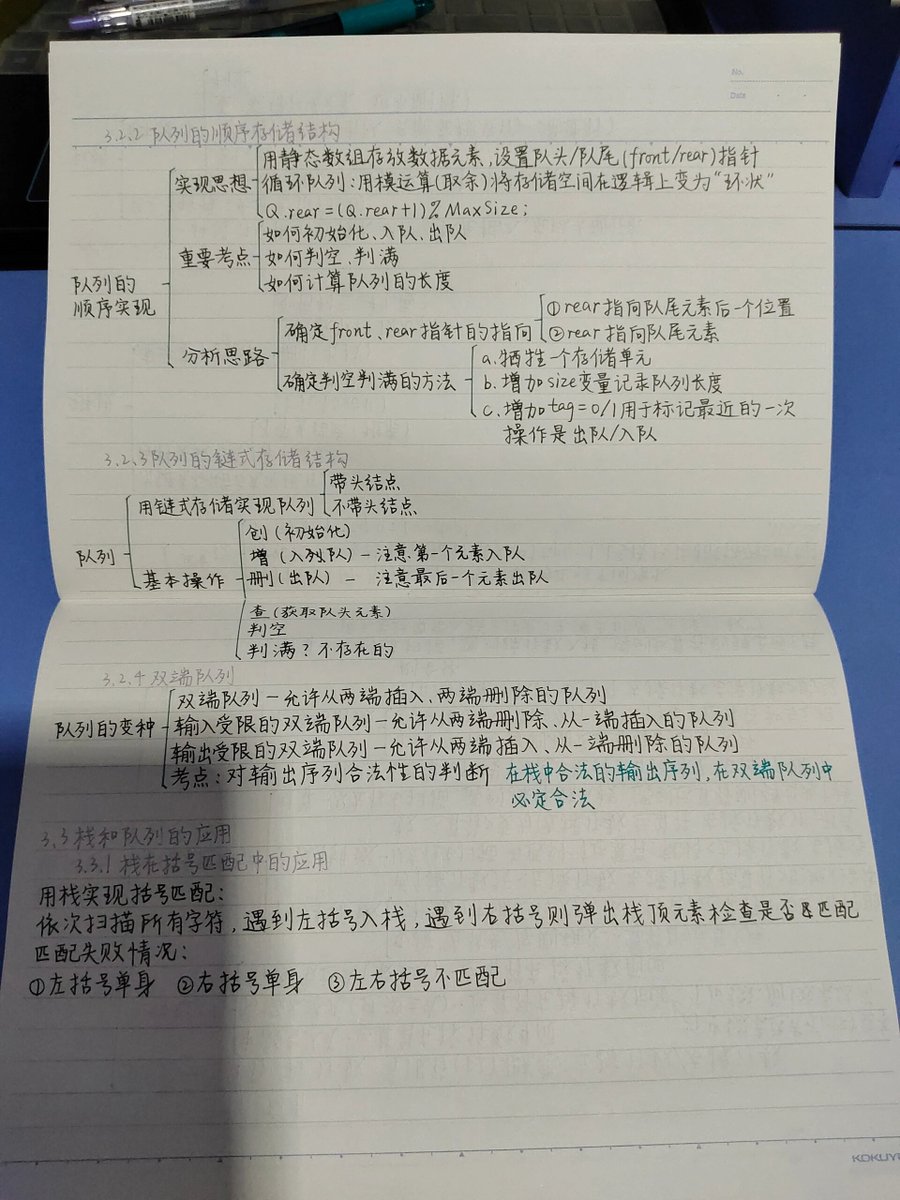 No.
Date
3.2.2 队列的顺序存储结构
队列的
顺序实现
实现思想
用静态数组存放数据元素,设置队头/队尾(front/rear)指针
循环队列:用模运算(取余)将存储空间在逻辑上变为“环状”
Q.rear=(Q.rear+1)%MaxSize;
重要考点
如何初始化、入队、出队
如何判空、判满
如何计算队列的长度
分析思路
确定front、rear指针的指向
①rear指向队尾元素后一个位置
②rear指向队尾元素
确定判空判满的方法
a.牺牲一个存储单元
b.增加size变量记录队列长度
c.增加tag=0/1用于标记最近的一次
操作是出队/入队
3.2.3队列的链式存储结构
队列
用链式存储实现队列
带头结点
不带头结点
基本操作
创(初始化)
增(入列队)-注意第一个元素入队
删(出队)- 注意最后一个元素出队
查(获取队头元素)
判空
判满?不存在的
3.2.4 双端队列
队列的变种
双端队列-允许从两端插入、两端删除的队列
输入受限的双端队列-允许从两端删除、从一端插入的队列
输出受限的双端队列-允许从两端插入、从一端删除的队列
考点:对输出序列合法性的判断 在栈中合法的输出序列,在双端队列中
必定合法
3.3栈和队列的应用
3.3.1栈在括号匹配中的应用
用栈实现括号匹配:
依次扫描所有字符,遇到左括号入栈,遇到右括号则弹出栈顶元素检查是否匹配
匹配失败情况:
①左括号单身 ②右括号单身 ③左右括号不匹配